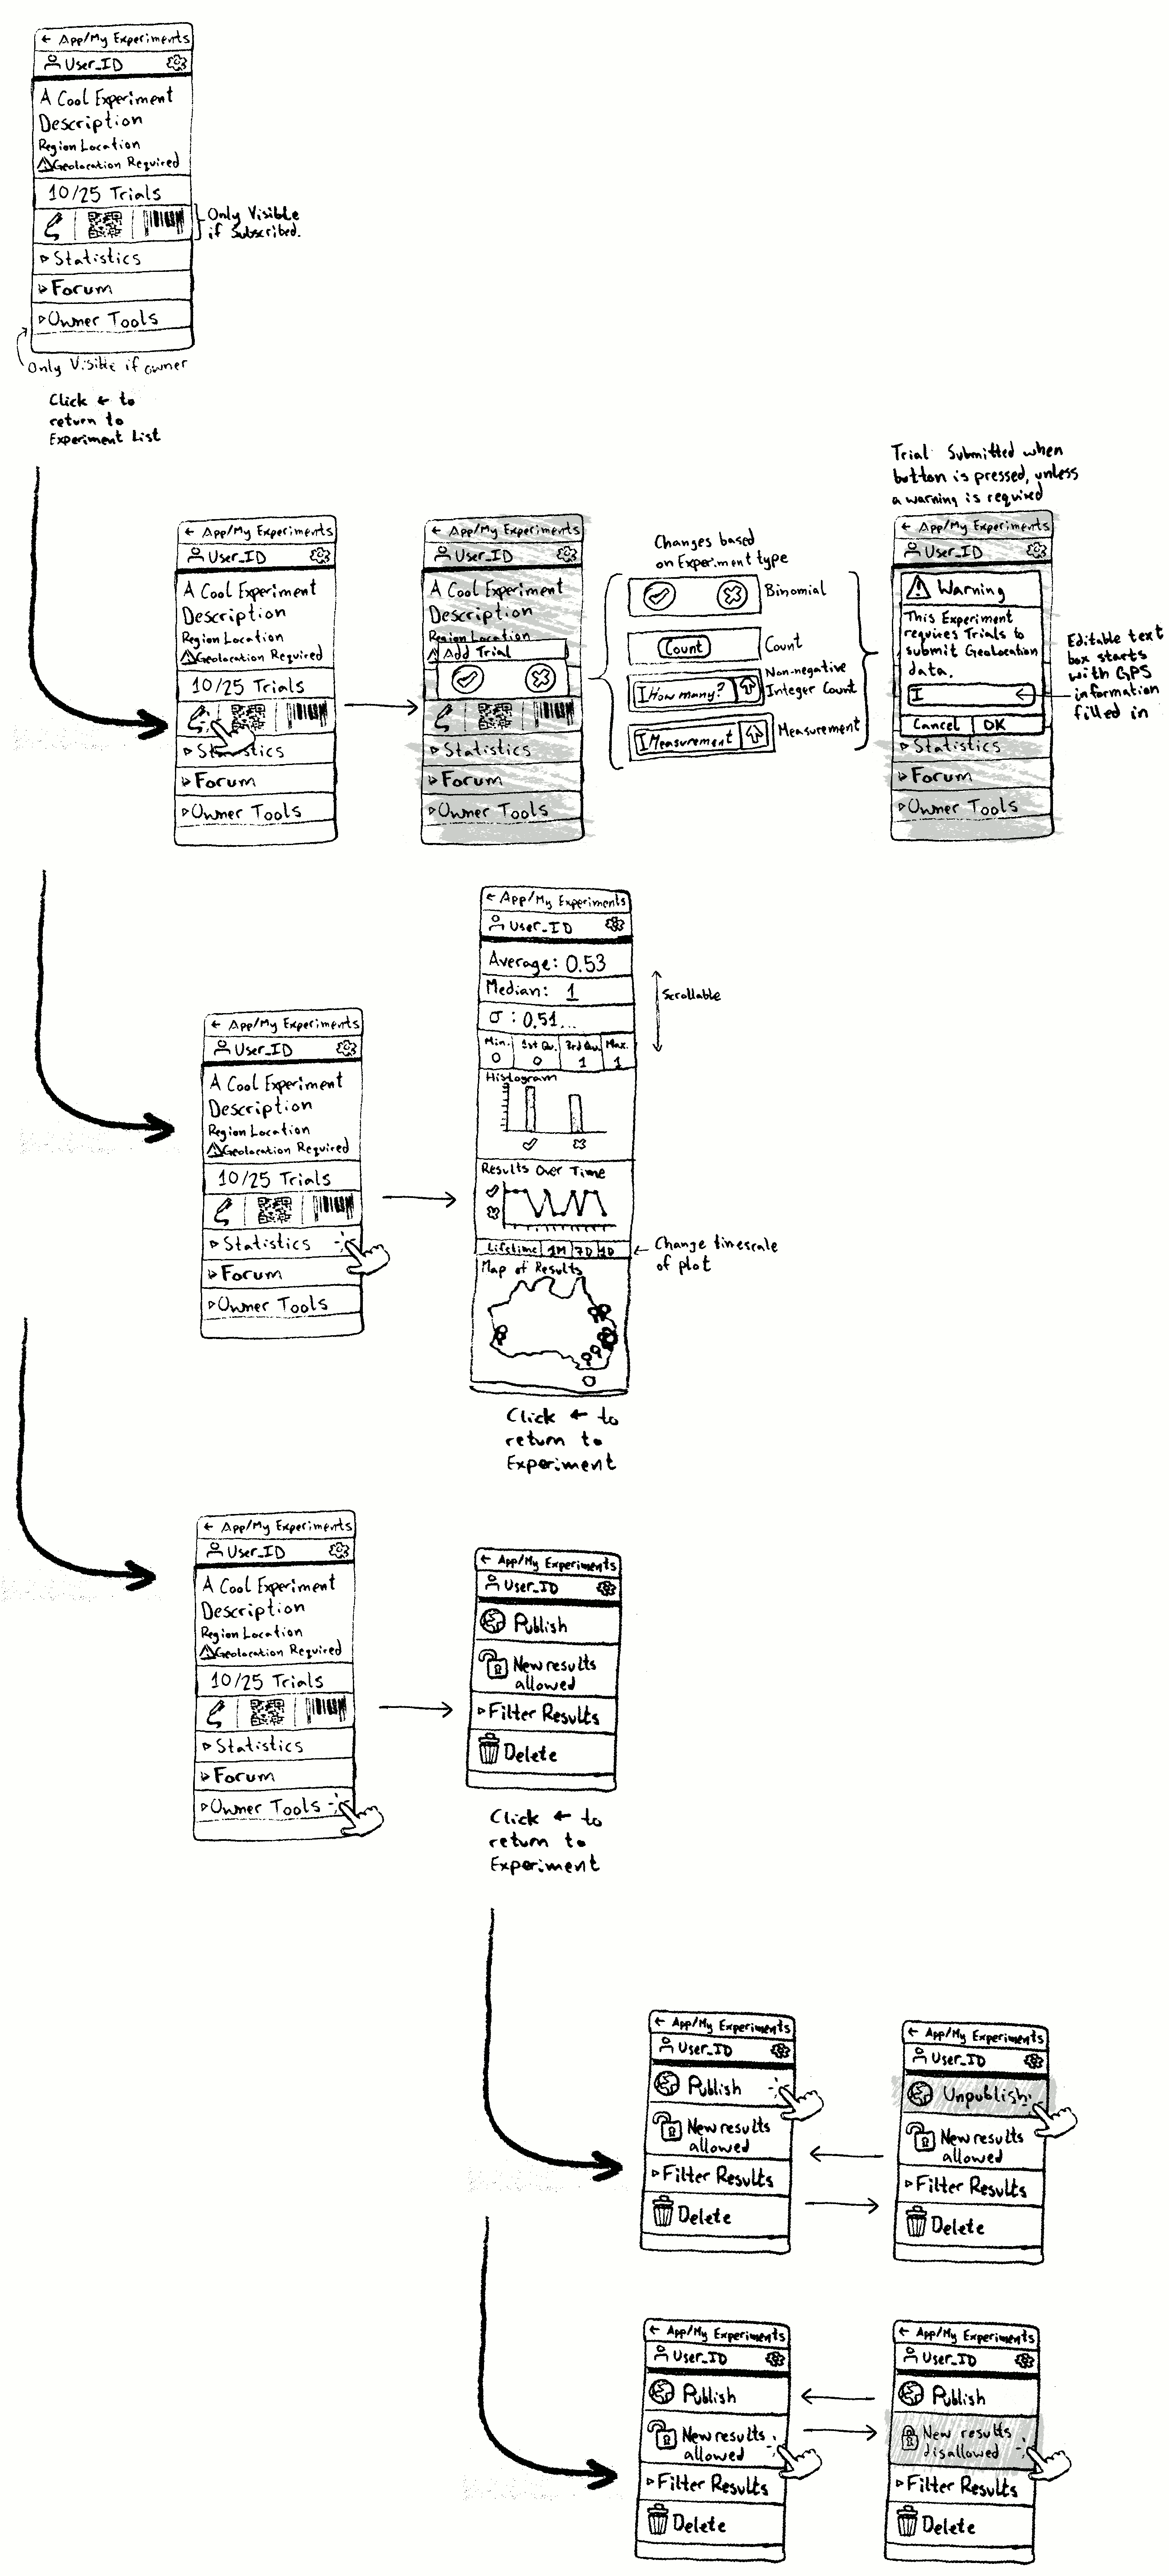 ← App/My Experiments
User_ID
A Cool Experiment
Description
Region Location
Geolocation Required
10/25 Trials
Only Visible
if Subscribed.
▹Statistics
▹Forum
▹Owner Tools
Only Visible if owner
Click ← to
return to
Experiment List
← App/My Experiments
User_ID
A Cool Experiment
Description
Region Location
Geolocation Required
10/25 Trials
▹Statistics
▹Forum
▹Owner Tools
← App/My Experiments
User_ID
A Cool Experiment
Description
Region Location
Add Trial
▹Statistics
▹Forum
▹Owner Tools
Changes based
on Experiment type
Binomial
Count
Count
How many?
Non-negative
Integer Count
Measurement
Measurement
Trial Submitted when
button is pressed, unless
a warning is required
← App/My Experiments
User_ID
Warning
This Experiment
requires Trials to
submit Geolocation
data.
Cancel OK
▹Statistics
▹Forum
▹Owner Tools
Editable text
box starts
with GPS
information
filled in
← App/My Experiments
User_ID
A Cool Experiment
Description
Region Location
Geolocation Required
10/25 Trials
▹Statistics
▹Forum
▹Owner Tools
← App/My Experiments
User_ID
Average: 0.53
Median: 1
σ: 0.51...
Min. 1st Qu. 3rd Qu. Max.
0 0 1 1
Histogram
Results Over Time
Lifetime 1M 7D 1D
Map of Results
Scrollable
← Change timescale
of plot
Click ← to
return to
Experiment
← App/My Experiments
User_ID
A Cool Experiment
Description
Region Location
Geolocation Required
10/25 Trials
▹Statistics
▹Forum
▹Owner Tools
← App/My Experiments
User_ID
Publish
New results
allowed
▹Filter Results
Delete
Click ← to
return to
Experiment
← App/My Experiments
User_ID
Publish
New results
allowed
▹Filter Results
Delete
← App/My Experiments
User_ID
Unpublish
New results
allowed
▹Filter Results
Delete
← App/My Experiments
User_ID
Publish
New results
allowed
▹Filter Results
Delete
← App/My Experiments
User_ID
Publish
New results
disallowed
▹Filter Results
Delete